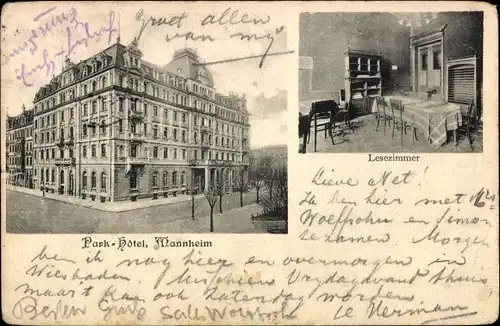 Groet allen
van mij
Lesezimmer
Park-Hôtel, Mannheim
Lieve Net!
Ik ben hier met Mr
Wolfsohn en Simon
te zamen Morgen
ben ik nog hier en overmorgen in
Wiesbaden. Misschien Vrijdagavond thuis
maar kan ook Zaterdag worden
je Herman
Besten Gruß